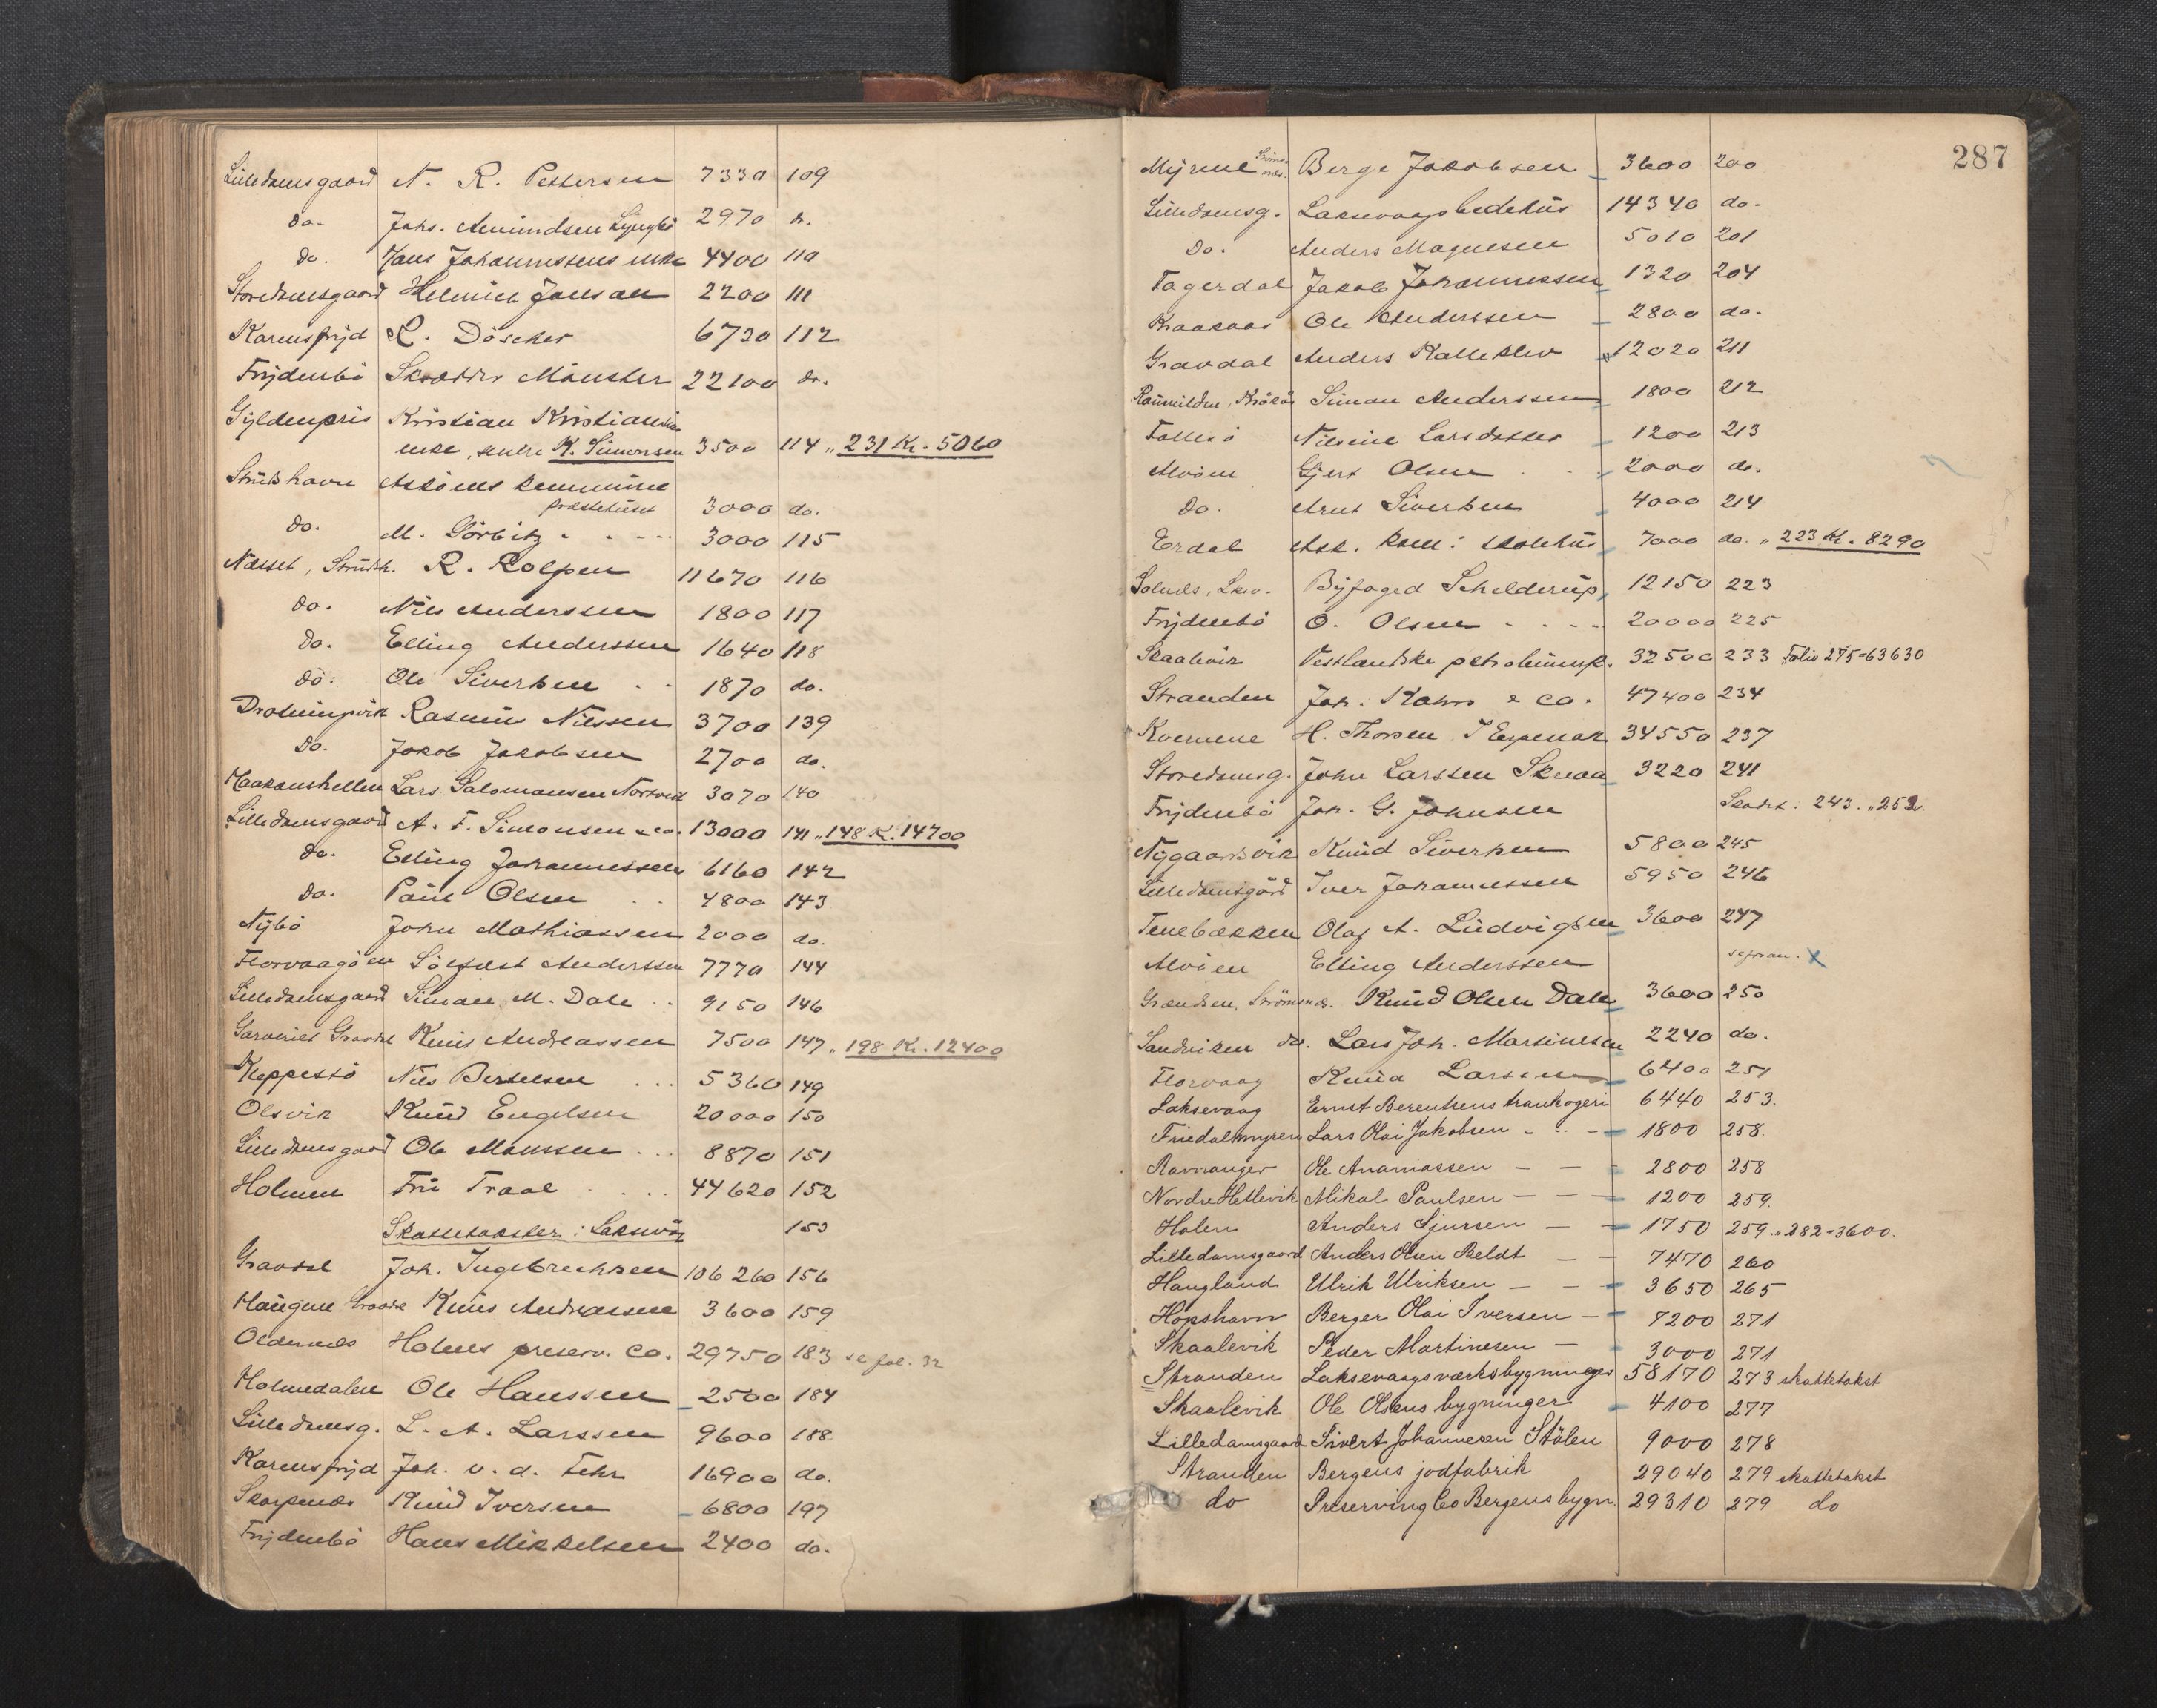 Lilledamsgaard N. R. Pettersen 7330 109
do. Johs. Amundsen Lyngbö 2970 do.
do. Hans Johannessens enke 4400 110
Storedamsgaard Helmich Jansen 2200 111
Karensfryd L. Döscher 6720 112
Frydenbö Skrædder Münster 22100 do.
Gyldenpris Kristian Kristiansens
enke, senere K. Simonsen 3500 114 „ 231 Kr. 5060
Strudshavn Askøens kommune
præstehuset 3000 do.
do. M. Görbitz 3000 115
Næsset, Strudsh. R. Rolfsen 11670 116
do. Nils Anderssen 1800 117
do. Elling Anderssen 1640 118
do. Ole Sivertsen 1870 do.
Drotningvik Rasmus Nilssen 3700 139
do. Jakob Jakobsen 2700 do.
Haakonshellen Lars Salomonsen Nordvik 3070 140
Lilledamsgaard A. F. Simonsen & co. 13000 141 „ 148 K. 14700
do. Elling Johannessen 6160 142
do. Paul Olsen 4800 143
Nybö John Mathiassen 2000 do.
Florvaagöen Sölfest Anderssen 7770 144
Lilledamsgaard Simon M. Dale 9150 146
Garveriet Gravdal Knut Andreassen 7500 147 „ 198 Kr. 12400
Kleppestö Nils Bertelsen 5360 149
Olsvik Knud Engelsen 20000 150
Lilledamsgaard Ole Monssen 8870 151
Holmen Fru Traae 44620 152
Skattetakster: Laksevåg 153
Gravdal Joh. Ingebrechtsen 106260 156
Haugene Gravdal Knut Andreassen 3600 159
Oldernæs Holmes preserv. Co. 29750 183 se fol. 32
Holmedalen Ole Hanssen 2500 184
Lilledamsg. L. A. Larssen 9600 188
Karensfryd Joh. v. d. Fehr 16900 do.
Skarpenæs Knud Iversen 6800 197
Frydenbö Hans Mikkelsen 2400 do.
287
Myrene Strömsnæs. Berge Jakobsen 3600 200
Lilledamsg. Laksevaags bedehus 14340 do.
do. Anders Magnesen 5010 201
Fagerdal Jakob Johannessen 1320 204
Kraakaas Ole Anderssen 2800 do.
Gravdal Anders Kalleklev 12020 211
Simon Anderssen 1800 212
Follesö Nilsine Larsdatter 1200 213
Alvöen Gjert Olsen 2000 do.
do. Arnt Sivertsen 4000 214
Erdal Ask. kom: skolehus 7000 do. „ 223 Kr. 8290
Solnæs, Lksv. Byfoged Schelderup 12150 223
Frydenbö O. Olsen 20000 225
Skaalevik Vestlandske petroleumsk. 32500 233 Folio 275=63630
Stranden Joh. Kahrs & co. 47400 234
Kvernene H. Thorsen I Espenak 34550 237
Storedamsg. John Larssen Skreaa 3220 241
Frydenbö Joh. G. Johnsen Skadet: 243. „252
Nygaardsvik Knud Sivertsen 5800 245
Lilledamsgård Iver Johannessen 5950 246
Tenebækken Olaf A. Ludvigsen 3600 247
Alvöen Elling Anderssen x
Grændsen, Strömsnæs. Knud Olsen Dale 3600 250
Sandviken do. Lars Joh. Martinsen 2240 do.
Florvaag Knud Larssen 6400 251
Laksevaag Ernst Berentsens trankogeri 6440 253.
Friedalsmyren Lars Olai Jakobsen 1800 258.
Ravnanger Ole Ananiassen 2800 258
Nordre Hetlevik Mikal Paulsen 1200 259.
Holen Anders Sjursen 1750 259. „282=3600.
Lilledamsgaard Anders Olsen Beldt 7470 260
Haugland Ulrik Ulriksen 3650 265
Hopshavn Berger Olai Iversen 7200 271
Skaalevik Peder Martinesen 3000 271
Stranden Laksevaagsværks bygninger 58170 273 skattetakst
Skaalevik Ole Olsens bygninger 4100 277
Lilledamsgaard Sivert Johannesen Stölen 9000 278
Stranden Bergens jodfabrik 29040 279 skattetakst
do Preserving Co Bergens bygn. 29310 279 do